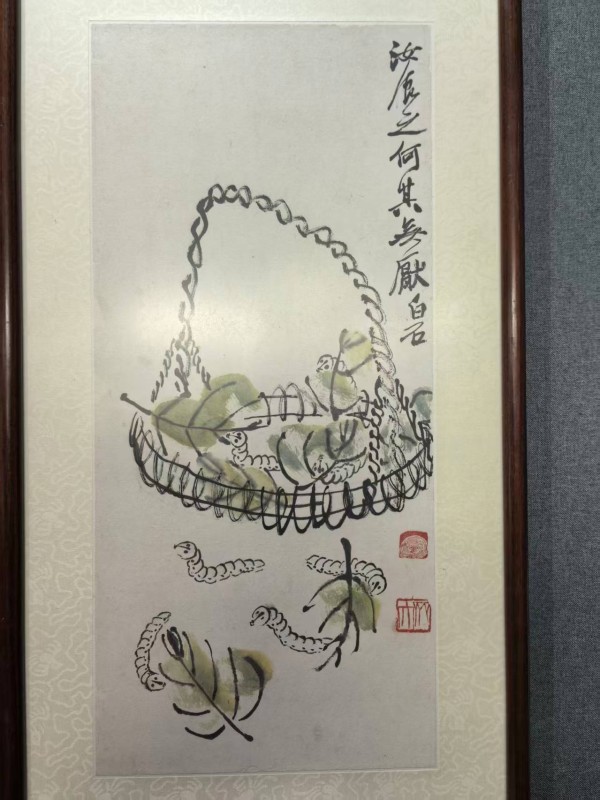 汝食之何其無厭白石